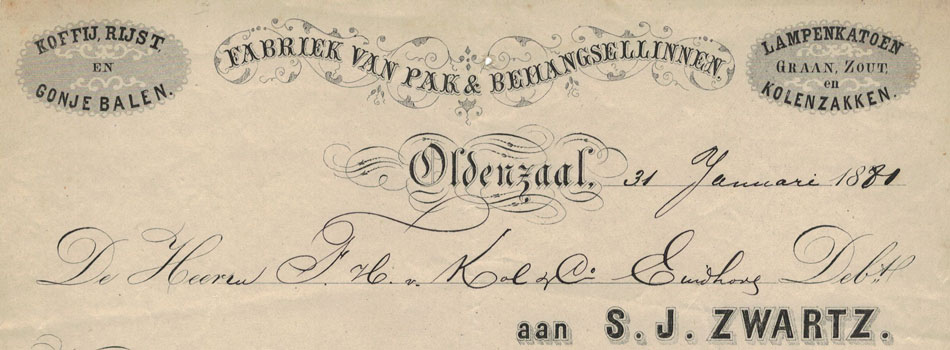 KOFFIJ, RIJST
EN
GONJE BALEN.
FABRIEK VAN PAK & BEHANGSELLINNEN.
LAMPENKATOEN
GRAAN, ZOUT,
en
KOLENZAKKEN.
Oldenzaal, 31 Januari 1881
De Heeren F. H. v. Kol & Co. Eindhove Debt
aan S. J. ZWARTZ.